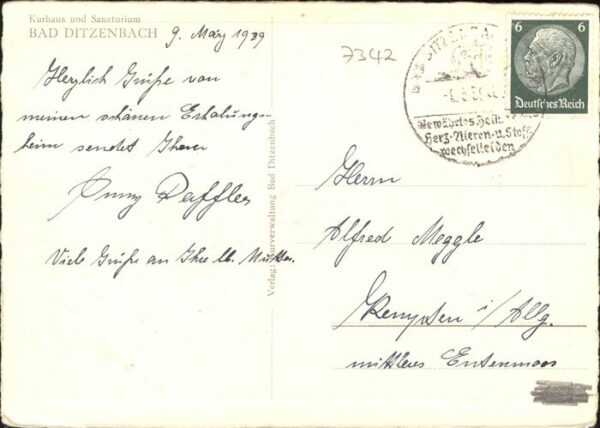 Kurhaus und Sanatorium
BAD DITZENBACH
9. März 1939
Herzlich Grüße von
meinem schönen Erholungs
heim sendet Ihnen
Anny Daffler
Viele Grüße an Ihre lb. Mutter.
Verlag: Kurverwaltung Bad Ditzenbach
7342
BAD DITZENBACH
Bewährtes Heilbad
Herz-Nieren-u. Stoff
wechselleiden
6 6
Deutsches Reich
Herrn
Alfred Meggle
Kempten i/Allg.
mittleres Entenmoos